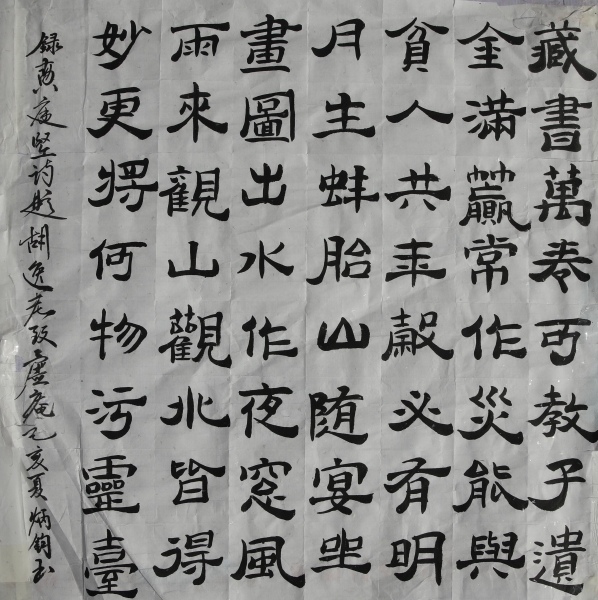 藏書萬卷可教子遺
金滿籯常作災能與
貧人共年穀必有明
月生蚌胎山随宴坐
畫圖出水作夜窓風
雨來觀山觀水皆得
妙更將何物污靈臺
録黄庭堅诗题胡逸老致虚庵乙亥夏炳钧书